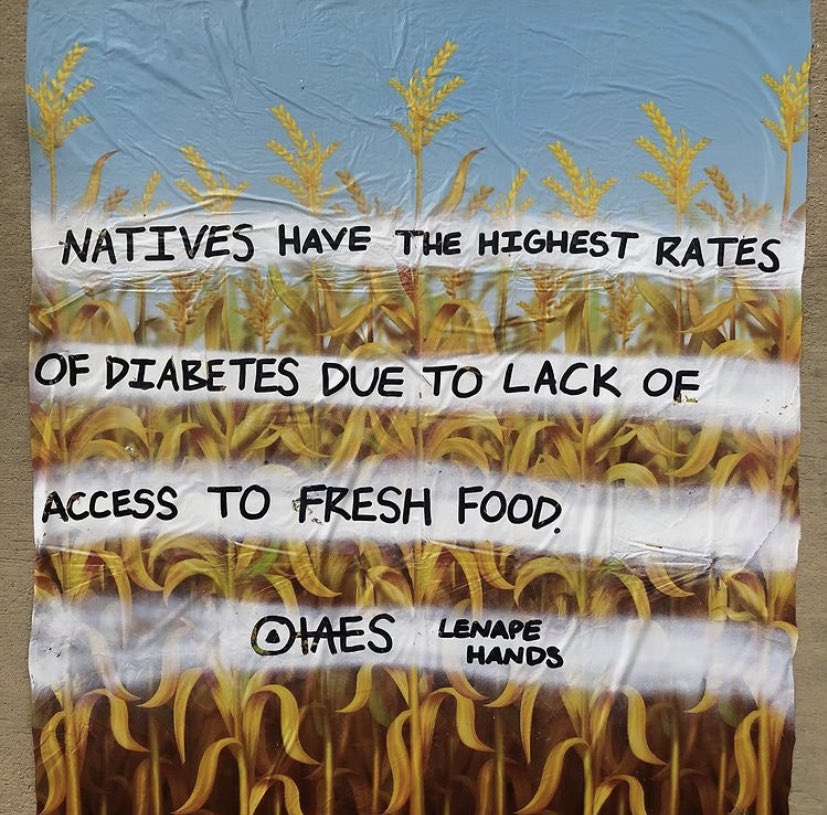 NATIVES HAVE THE HIGHEST RATES
OF DIABETES DUE TO LACK OF
ACCESS TO FRESH FOOD.
LENAPE
HANDS